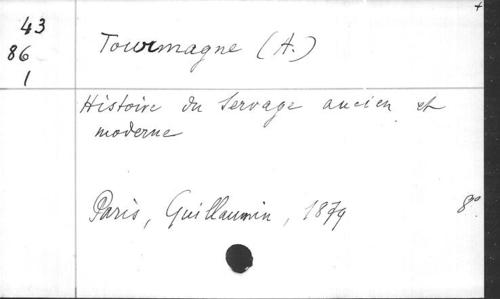 43
86
1
Tourmagne (A.)
+
Histoire du Servage ancien et
moderne
Paris, Guillaumin, 1879 8º